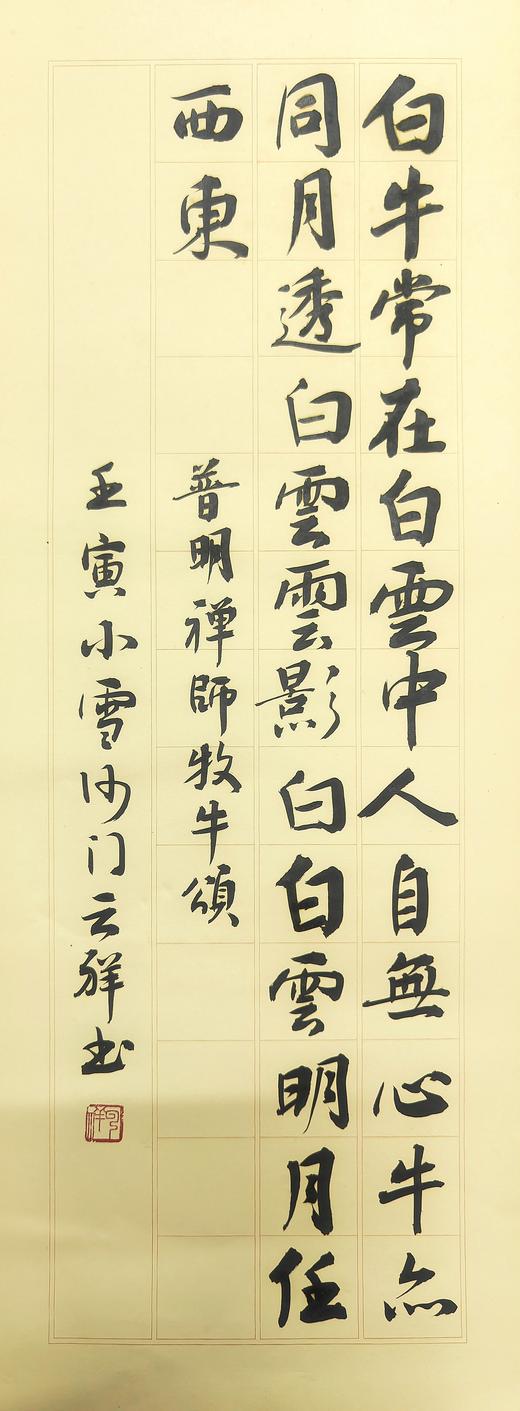 白牛常在白雲中人自無心牛亦
同月透白雲雲影白白雲明月任
西東
普明禅師牧牛頌
壬寅小雪沙门云祥书